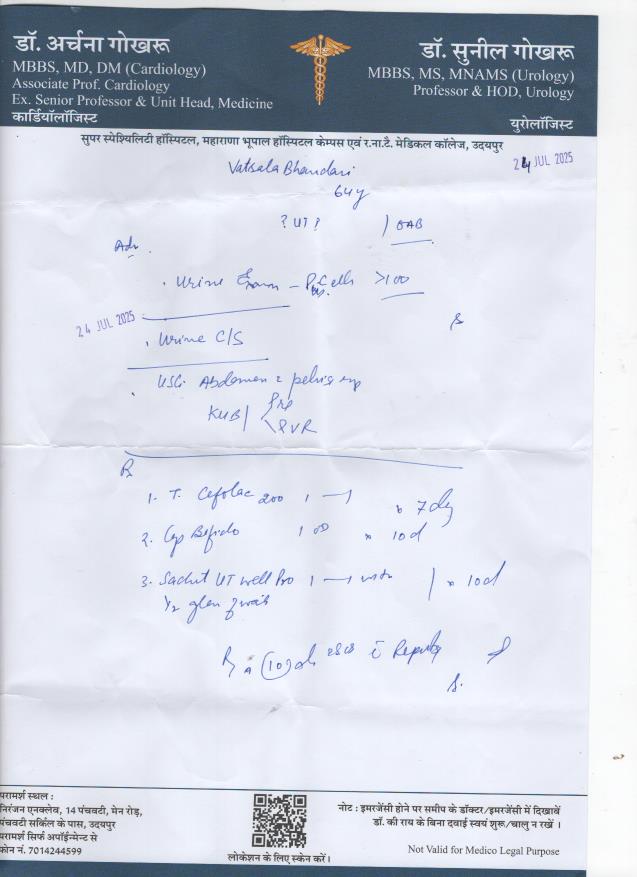 डॉ. अर्चना गोखरू
MBBS, MD, DM (Cardiology)
Associate Prof. Cardiology
Ex. Senior Professor & Unit Head, Medicine
कार्डियॉलॉजिस्ट
डॉ. सुनील गोखरू
MBBS, MS, MNAMS (Urology)
Professor & HOD, Urology
युरोलॉजिस्ट
सुपर स्पेश्यिलिटी हॉस्पिटल, महाराणा भूपाल हॉस्पिटल केम्पस एवं र.ना.टै. मेडिकल कॉलेज, उदयपुर
24 JUL 2025
Vatsala Bhandari
64y
? UT ? / OAB
Adv.
. Urine Exam - Pus Cells >100
24 JUL 2025
. Urine C/S
. USG Abdomen & pelvis
KUB / Pre
PVR
Rx
1. T. Cefolac 200 1 — 1 x 7 day
2. Cap Bifido 1 OD x 10d
3. Sachet UT well Pro 1 — 1 x 10d
1/2 glass of water
परामर्श स्थल :
निरंजन एनक्लेव, 14 पंचवटी, मेन रोड़,
पंचवटी सर्किल के पास, उदयपुर
परामर्श सिर्फ अपॉईन्मेन्ट से
फोन नं. 7014244599
लोकेशन के लिए स्केन करें।
नोट : इमरजेंसी होने पर समीप के डॉक्टर/इमरजेंसी में दिखाबें
डॉ. की राय के बिना दवाई स्वयं शुरू/चालु न रखें ।
Not Valid for Medico Legal Purpose